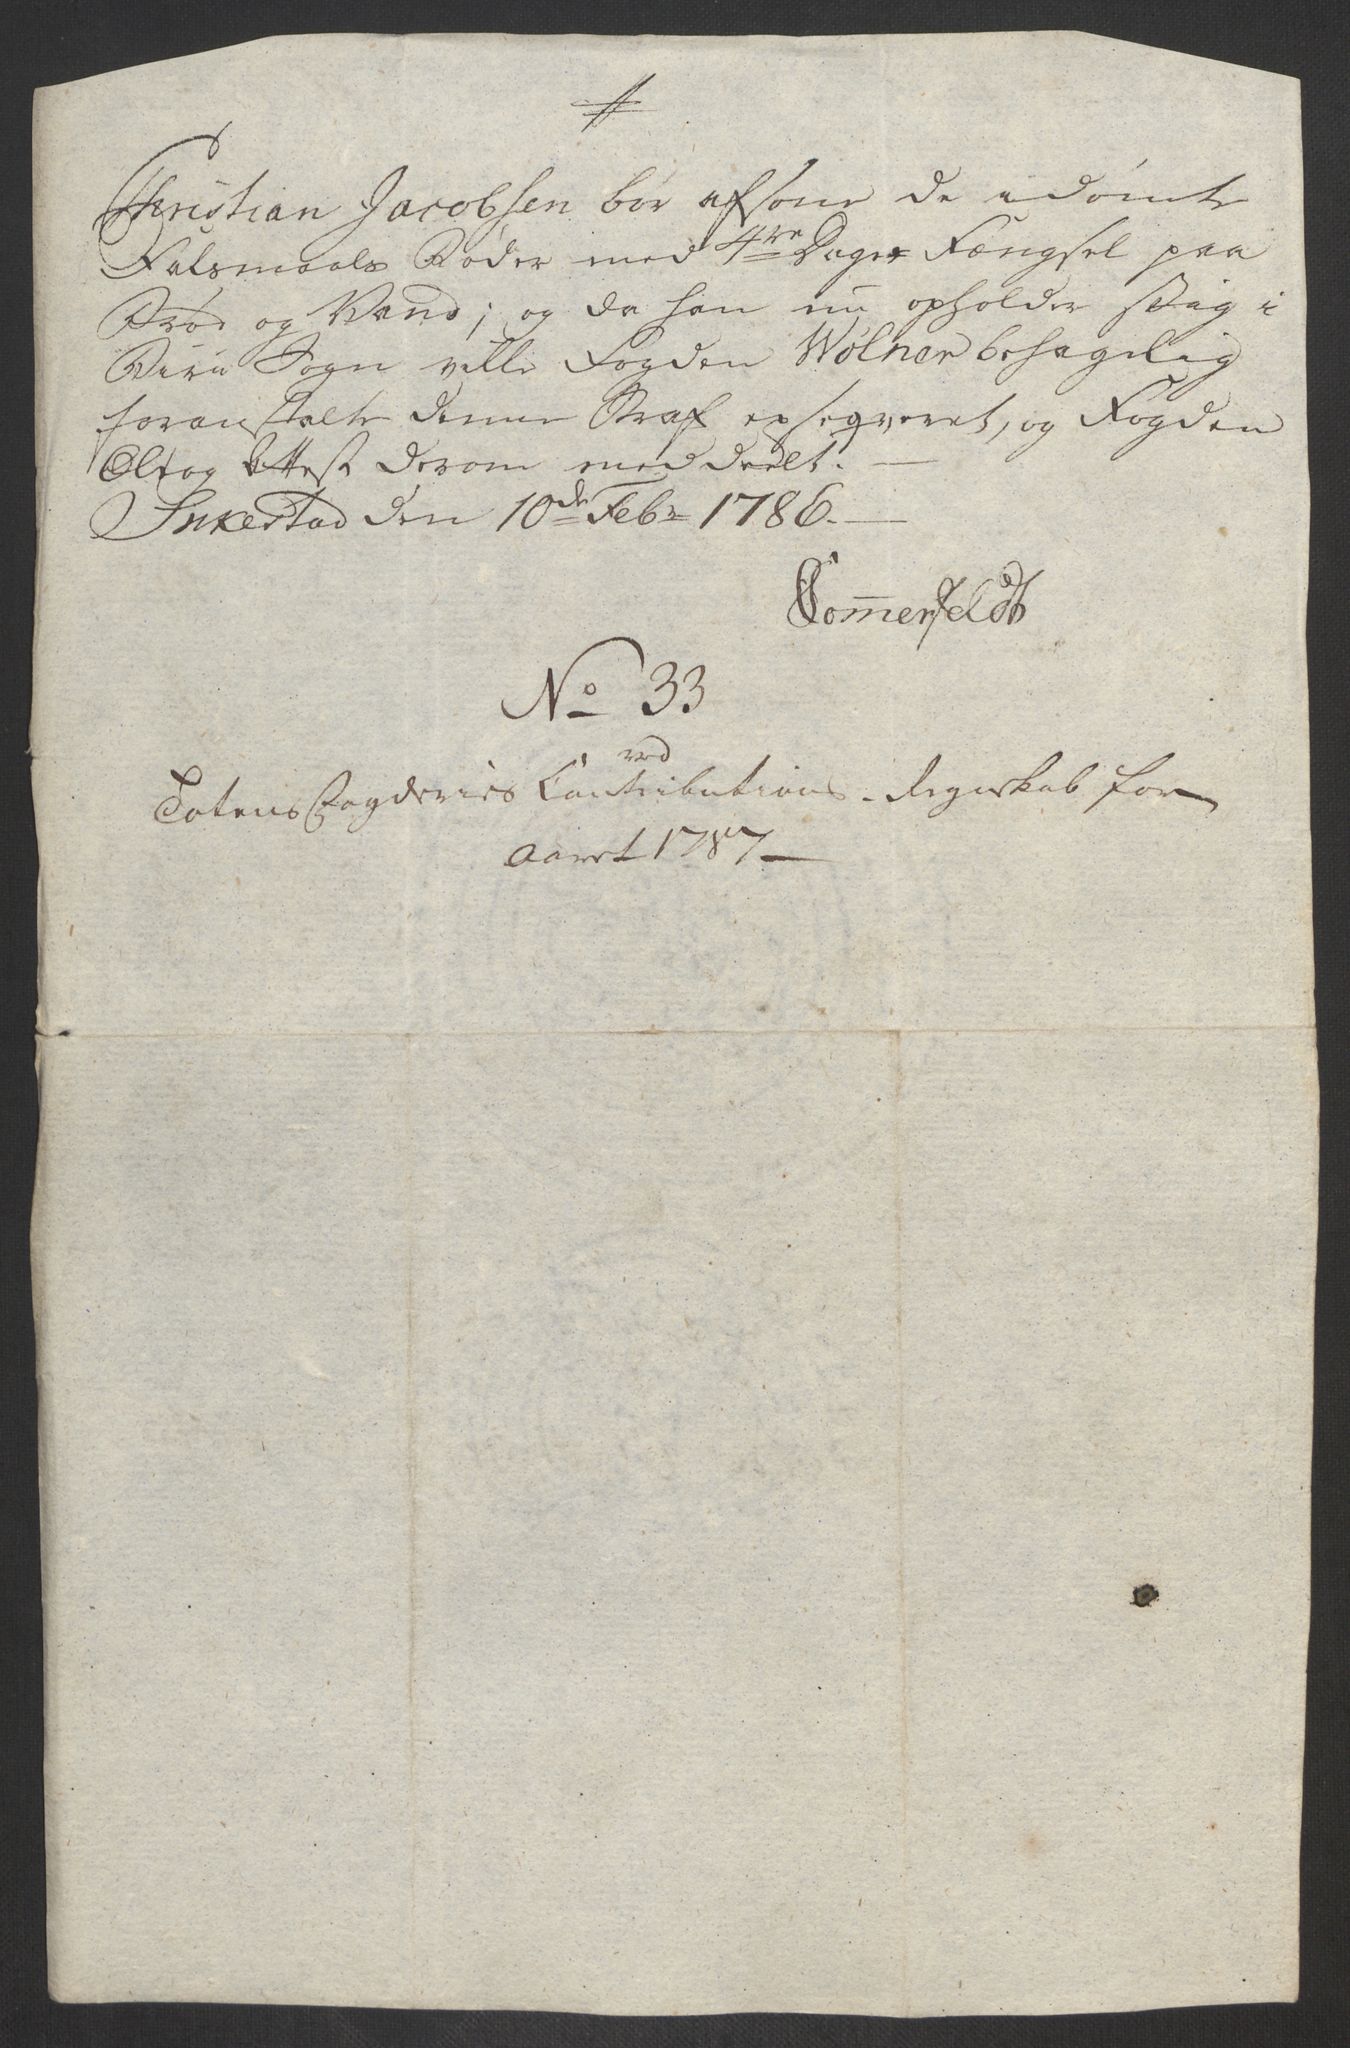 Christian Jacobsen bør afsone de idømte
Falsmaals Bøder med 4re Dages Fængsel paa
Brød og Vand; og da han nu opholder sig i
Birie Sogn ville Fogden Wølner behagelig
foranstalte denne Straf exseqveret, og Fogden
Oltog Attest derom meddeelt. —
Inkestad den 10de Febr 1786. —
Sommerfeldt
No 33
ved
Totens Fogderies Contributions-Regnskab for
Aaret 1787 —